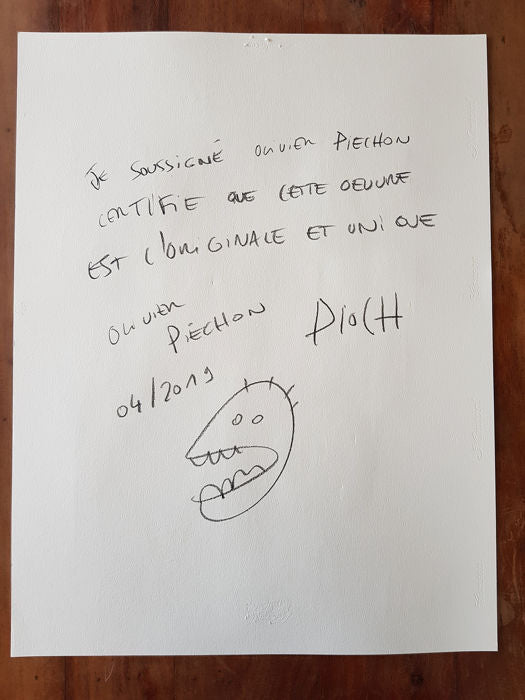 Je SOUSSIGNÉ OLIVIER PIECHON
CERTIFIE QUE CETTE OEUVRE
EST L'ORIGINALE ET UNIQUE
OLIVIER
PIÉCHON
PIOCH
04/2019